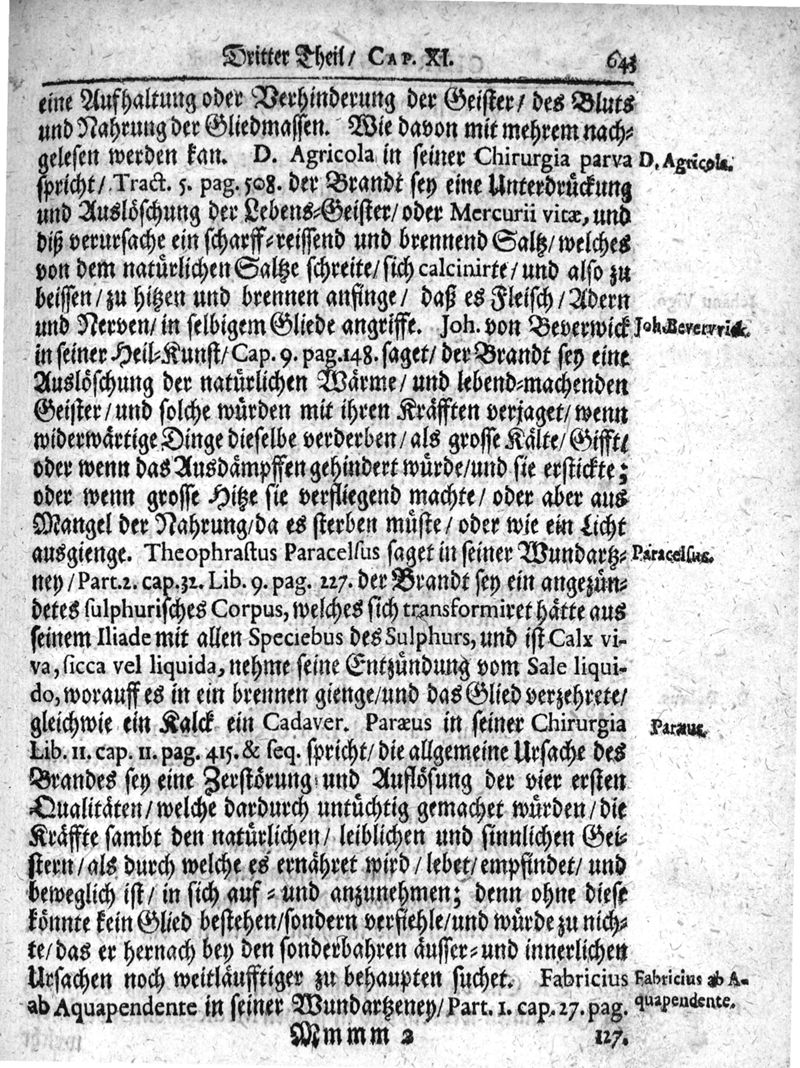 Dritter Theil/ CAP. XI. 643
eine Aufhaltung oder Verhinderung der Geister/ des Bluts
und Nahrung der Gliedmassen. Wie davon mit mehrem nach-
gelesen werden kan. D. Agricola in seiner Chirurgia parva
D. Agricola.
spricht/ Tract. 5. pag. 508. der Brandt sey eine Unterdrückung
und Auslöschung der Lebens-Geister/ oder Mercurii vitæ, und
diß verursache ein scharff-reissend und brennend Saltz/ welches
von dem natürlichen Saltze schreite/ sich calcinirte/ und also zu
beissen/ zu hitzen und brennen anfinge/ daß es Fleisch/ Adern
und Nerven/ in selbigem Gliede angriffe. Joh. von Beverwick
Joh. Beverwick.
in seiner Heil-Kunst/ Cap. 9. pag. 148. saget/ der Brandt sey eine
Auslöschung der natürlichen Wärme/ und lebend-machenden
Geister/ und solche würden mit ihren Kräfften verjaget/ wenn
widerwärtige Dinge dieselbe verderben/ als grosse Kälte/ Gifft/
oder wenn das Ausdämpffen gehindert würde/ und sie erstickte;
oder wenn grosse Hitze sie verfliegend machte/ oder aber aus
Mangel der Nahrung/ da es sterben müste/ oder wie ein Licht
ausgienge. Theophrastus Paracelsus saget in seiner Wundartz-
Paracelsus.
ney/ Part. 2. cap. 32. Lib. 9. pag. 227. der Brandt sey ein angezün-
detes sulphurisches Corpus, welches sich transformiret hätte aus
seinem Iliade mit allen Speciebus des Sulphurs, und ist Calx vi-
va, sicca vel liquida, nehme seine Entzündung vom Sale liqui-
do, worauff es in ein brennen gienge/ und das Glied verzehrete/
gleichwie ein Kalck ein Cadaver. Paræus in seiner Chirurgia
Paræus.
Lib. 11. cap. 11. pag. 415. & seq. spricht/ die allgemeine Ursache des
Brandes sey eine Zerstörung und Auflösung der vier ersten
Qualitäten/ welche dardurch untüchtig gemachet würden/ die
Kräffte sambt den natürlichen/ leiblichen und sinnlichen Gei-
stern/ als durch welche es ernähret wird/ lebet/ empfindet/ und
beweglich ist/ in sich auf- und anzunehmen; denn ohne diese
könnte kein Glied bestehen/ sondern verfiehle/ und würde zu nich-
te/ das er hernach bey den sonderbahren äusser- und innerlichen
Ursachen noch weitläufftiger zu behaupten suchet. Fabricius
Fabricius ab A-
ab Aquapendente in seiner Wundartzeney/ Part. 1. cap. 27. pag.
quapendente.
Mmmm 2 127.